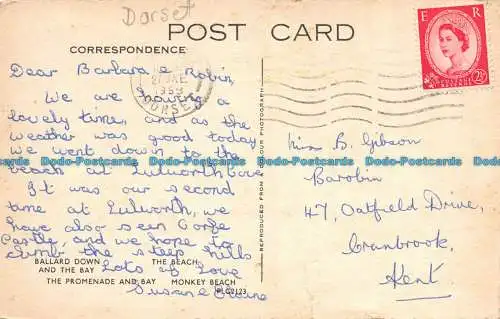 Dorset
POST CARD
CORRESPONDENCE
E R
2½D
1959
DORSET
Dear Barbara & Robin,
We are having a
lovely time, and as the
weather was good today
we went down to the
beach at Lulworth Cove
It was our second
time at Lulworth, we
have also seen Corfe
Castle, and we hope to
climb the steep hills
Lots of Love
Susan &
BALLARD DOWN THE BEACH
AND THE BAY
THE PROMENADE AND BAY MONKEY BEACH
PLC2123
REPRODUCED FROM A COLOUR PHOTOGRAPH
Miss B. Gibson
Barobin
47, Oatfield Drive,
Cranbrook,
Kent
Dodo-Postcards Dodo-Postcards Dodo-Postcards Dodo-Postcards Dodo-Postcards